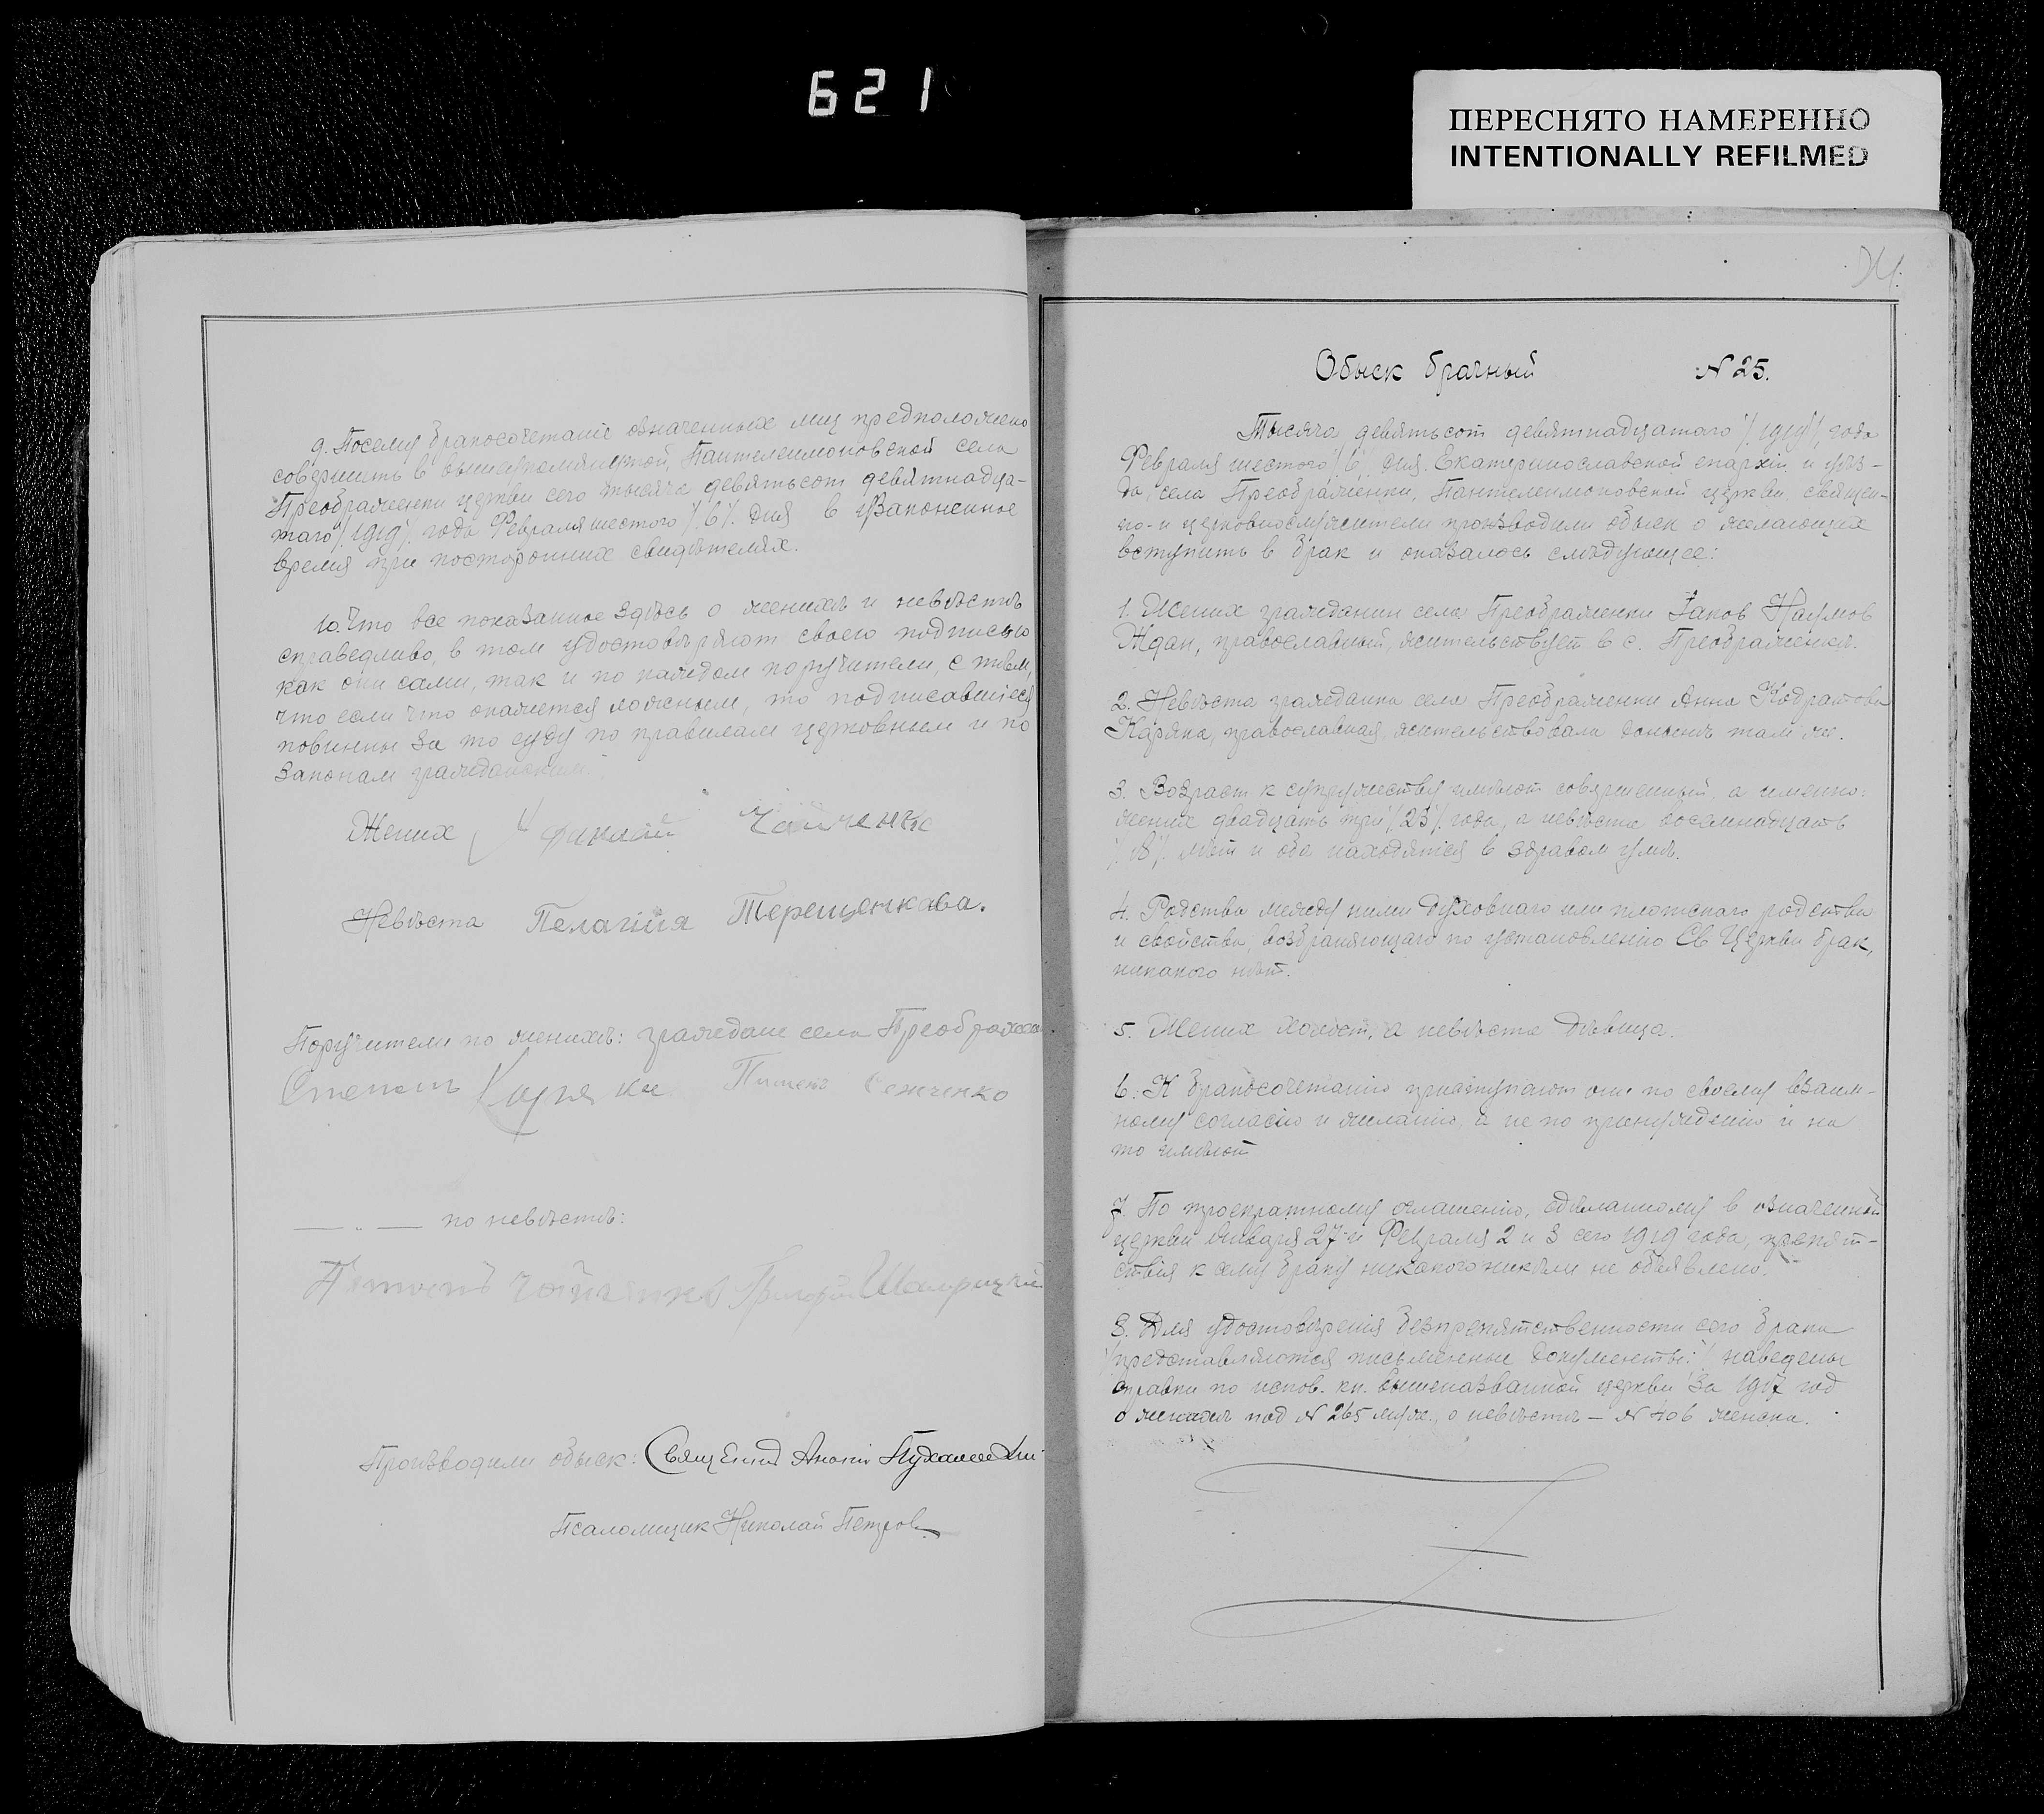 621
ПЕРЕСНЯТО НАМЕРЕННО
INTENTIONALLY REFILMED
9. Посему бракосочетаніе означенных лиц предположено
совершить в вышеупомянутой, Пантелеимоновской села
Преображенки церкви сего тысяча девятьсот девятнадца-
таго /1919/. года Февраля шестого /6/. дня в узаконенное
время при посторонних свидѣтелях.
10. Что все показанное здѣсь о женихѣ и невѣстѣ
справедливо, в том удостовѣряют своею подписью
как они сами, так и по каждом поручители, с тѣм,
что если что окажется ложным, то подписавшіеся
повинны за то суду по правилам церковным и по
законам гражданским.
Жених
Невѣста Пелагіия Терещенкава.
Поручители по женихѣ: граждане села Преображенки
по невѣстѣ:
Производили обыск: Священ
Псаломщик Николай Петров
Обыск брачный N 25.
Тысяча девятьсот девятнадцатаго /1919/, года
Февраля шестого /6/ дня. Екатеринославской епархіи и уѣз-
да, села Преображенки, Пантелеимоновской церкви, священ-
но- и церковнослужители производили обыск о желающих
вступить в брак и оказалось слѣдующее:
1. Жених гражданин села Преображенки Іаков Наумов
Ждан, православный, жительствует в с. Преображенкѣ.
2. Невѣста гражданка села Преображенки Анна Кодратова
Каряка, православная, жительствовала донынѣ там же.
3. Возраст к супружеству имѣют совершенный, а именно:
жених двадцать три /23/. года, а невѣста восемнадцать
/18/. лѣт и оба находятся в здравом умѣ.
4. Родства между ними духовнаго или плотскаго родства
и свойства, возбраняющаго по установленію Св Церкви брак,
никакого нѣт.
5. Жених холост, а невѣста дѣвица.
6. К бракосочетанію приступают они по своему взаим-
ному согласію и желанію, а не по принужденію и на
то имѣют
7. По троекратному оглашенію, сдѣланному в означенной
церкви Января 27-и Февраля 2 и 3 сего 1919 года, препят-
ствія к сему браку никакого никѣм не объявлено.
8. Для удостовѣренія безпрепятственности сего брака
представляются письменные документы: наведены
справки по испов. кн. вышеназванной церкви за 1917 год
о женихѣ под N 265 муж., о невѣстѣ — N 406 женск.